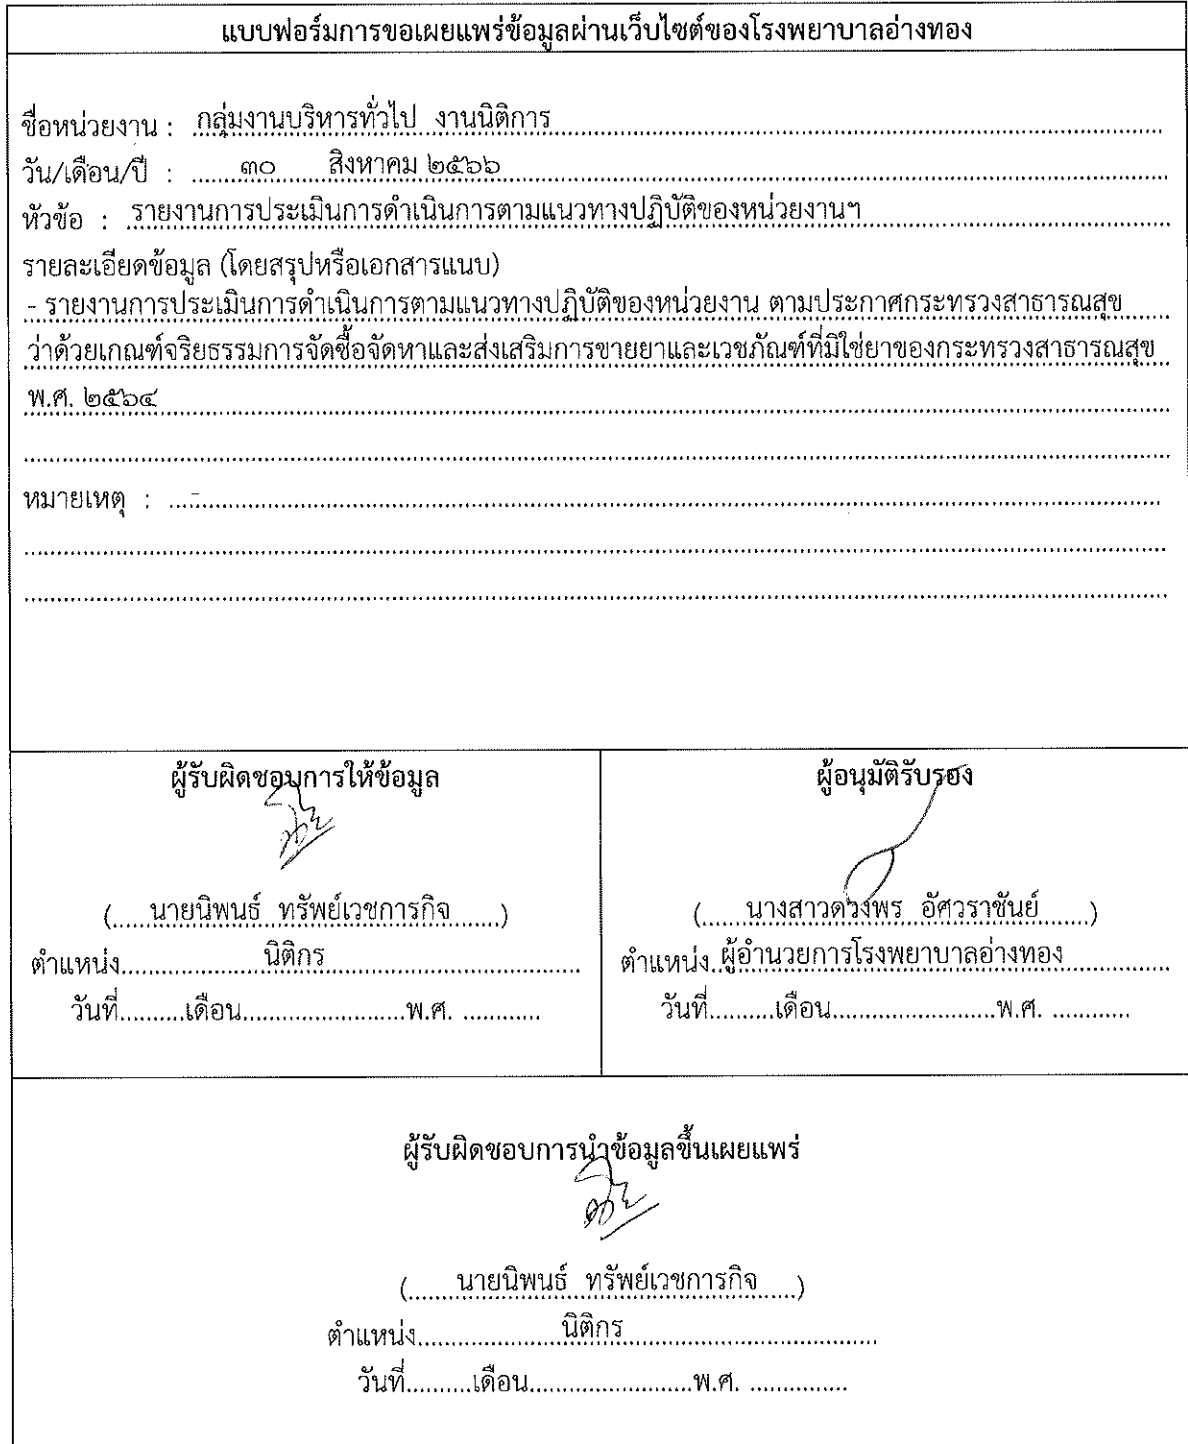 แบบฟอร์มการขอเผยแพร่ข้อมูลผ่านเว็บไซต์ของโรงพยาบาลอ่างทอง
ชื่อหน่วยงาน : กลุ่มงานบริหารทั่วไป งานนิติการ
วัน/เดือน/ปี : ๓๐ สิงหาคม ๒๕๖๖
หัวข้อ : รายงานการประเมินการดำเนินการตามแนวทางปฏิบัติของหน่วยงานฯ
รายละเอียดข้อมูล (โดยสรุปหรือเอกสารแนบ)
- รายงานการประเมินการดำเนินการตามแนวทางปฏิบัติของหน่วยงาน ตามประกาศกระทรวงสาธารณสุข
ว่าด้วยเกณฑ์จริยธรรมการจัดซื้อจัดหาและส่งเสริมการขายยาและเวชภัณฑ์ที่มิใช่ยาของกระทรวงสาธารณสุข
พ.ศ. ๒๕๖๔
หมายเหตุ : -
ผู้รับผิดชอบการให้ข้อมูล
(นายนิพนธ์ ทรัพย์เวชการกิจ)
ตำแหน่ง นิติกร
วันที่..........เดือน.........................พ.ศ. ............
ผู้อนุมัติรับรอง
(นางสาวดวงพร อัศวราชันย์)
ตำแหน่ง ผู้อำนวยการโรงพยาบาลอ่างทอง
วันที่..........เดือน.........................พ.ศ. ............
ผู้รับผิดชอบการนำข้อมูลขึ้นเผยแพร่
(นายนิพนธ์ ทรัพย์เวชการกิจ)
ตำแหน่ง นิติกร
วันที่..........เดือน.........................พ.ศ. ...............